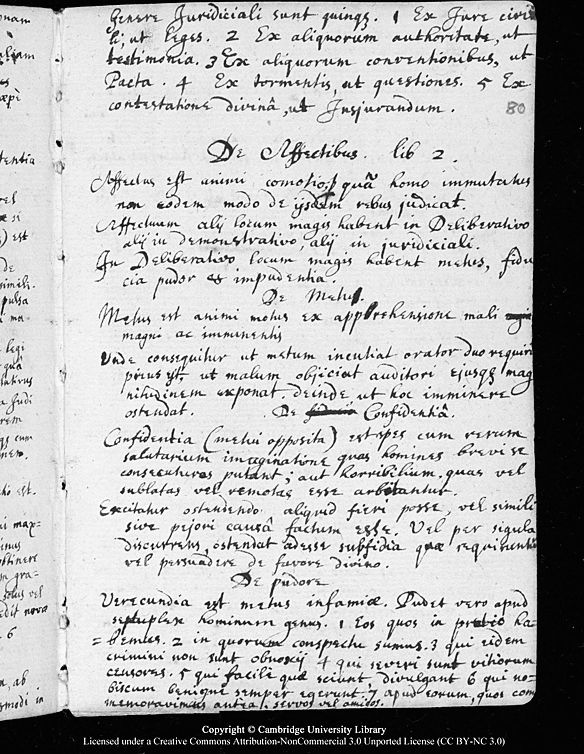 Genere Juridiciali sunt quinqȝ. 1 Ex Jure civi
li, ut leges. 2 Ex aliquorum authoritate, ut
testimonia. 3 Ex aliquorum conventionibus, ut
Pacta. 4 Ex tormentis, ut questiones. 5 Ex
contestatione divinâ, ut Jusjurandum.
80
De Affectibus. lib 2.
Affectus est animi comotio, quâ homo immutatus
non eodem modo de ijsdem rebus judicat.
Affectuum alij locum magis habent in Deliberativo
alij in demonstrativo, alij in juridiciali.
In Deliberativo locum magis habent metus, fidu
cia pudor et impudentia.
De Metu.
Metus est animi motus ex apprehensione mali
magni ac imminentis
Unde consequitur ut metum incutiat orator duo requiri
ut malum objiciat auditori ejusqȝ mag
nitudinem exponat. deinde, ut hoc imminere
ostendat. De Confidentiâ.
Confidentia (metui opposita) est spes cum rerum
salutarium imaginatione quas homines brevi se
consecuturos putant; aut horribilium, quas vel
sublatas vel remotas esse arbitantur.
Excitatur ostendendo aliquid fieri posse, vel simili
sive pejori causâ factum esse. Vel per sigula
discurrens, ostendat adesse subsidia quæ requiruntur
vel persuadere de favore divino.
De pudore
Verecundia est metus infamiæ. Pudet vero apud
septuplex hominum genus. 1 Eos quos in pretio ha-
=bemus. 2 in quorum conspectu sumus. 3 qui eidem
crimini non sunt obnoxij 4 qui severi sunt vitiorum
censores. 5 qui facile quæ sciunt, divulgant 6 qui no-
biscum benigne semper egerunt. 7 apud eorum, quos com
memoravimus antea, servos vel amicos.
Copyright © Cambridge University Library
Licensed under a Creative Commons Attribution-NonCommercial 3.0 Unported License (CC BY-NC 3.0)